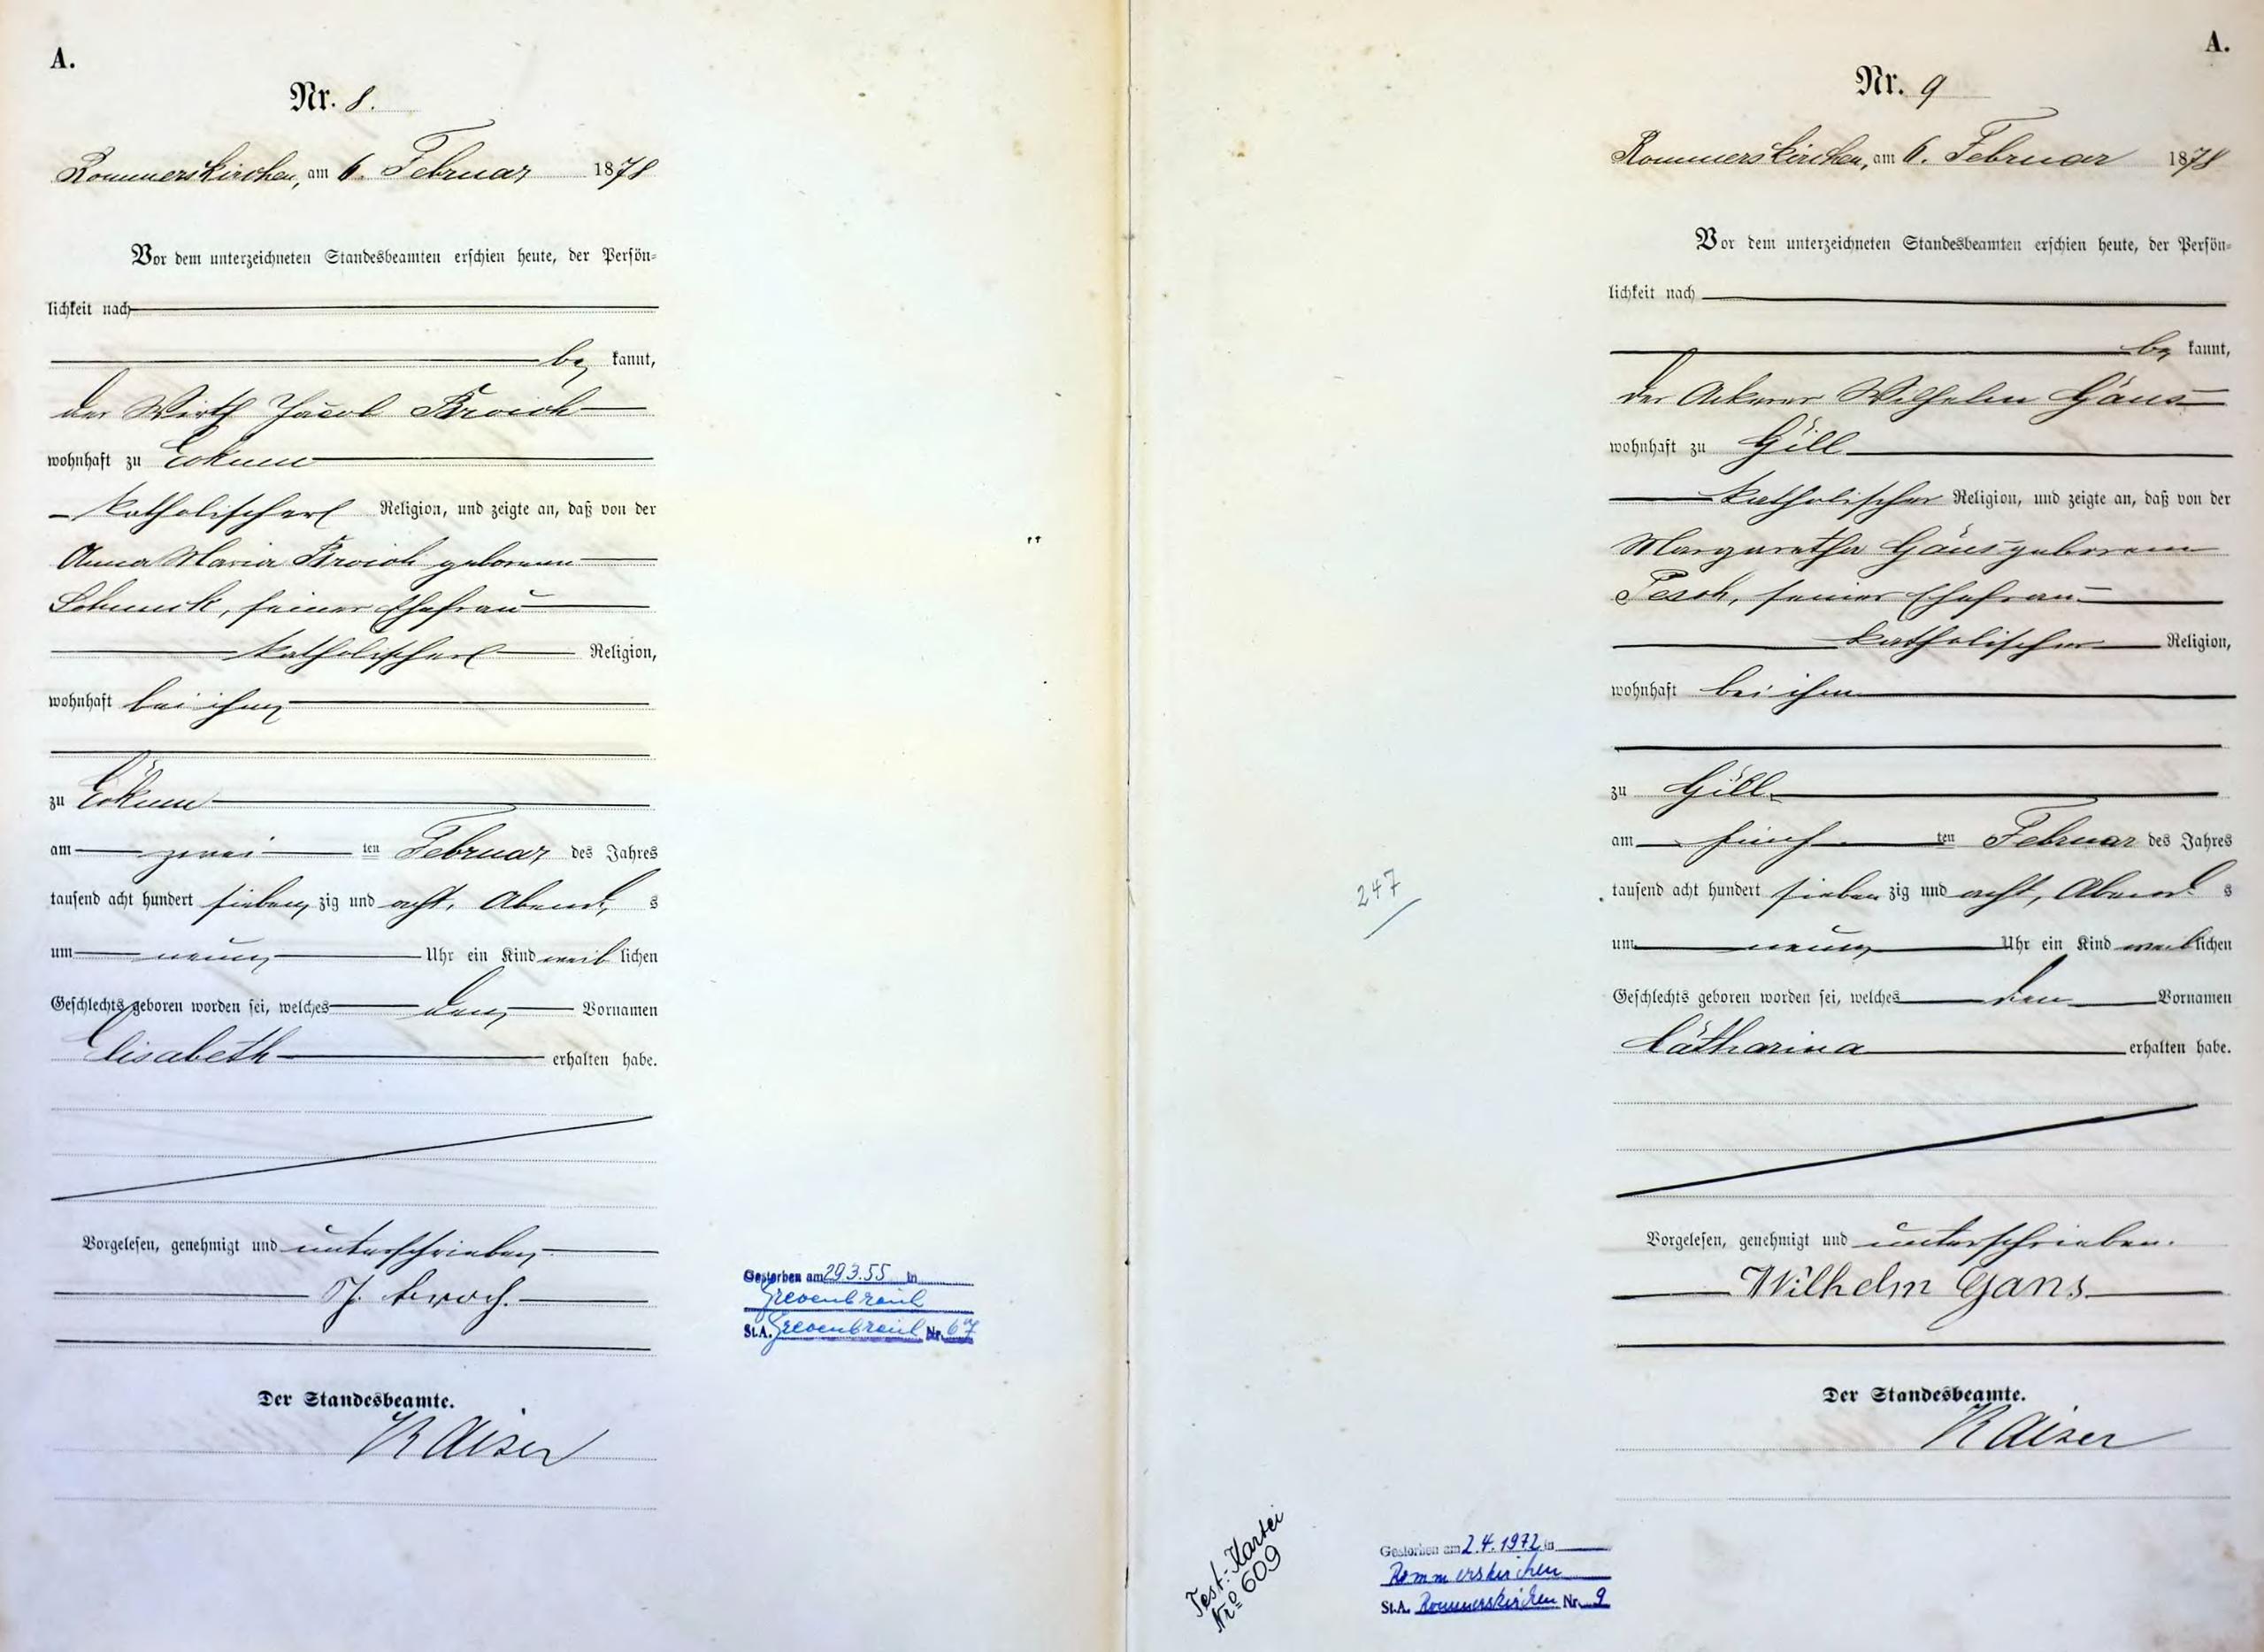 A.
Nr. 8.
Rommerskirchen, am 6. Februar 1878
Vor dem unterzeichneten Standesbeamten erschien heute, der Persön-
lichkeit nach
be kannt,
der Wirth Jacob Broich
wohnhaft zu Eckum
katholischer Religion, und zeigte an, daß von der
Anna Maria Broich geborenen
seiner Ehefrau
katholischer Religion,
wohnhaft bei ihm
zu Eckum
am zwei ten Februar des Jahres
tausend acht hundert sieben zig und acht, Abend s
um neun Uhr ein Kind weib lichen
Geschlechts geboren worden sei, welches den Vornamen
Elisabeth erhalten habe.
Vorgelesen, genehmigt und unterschrieben.
J. broch.
Der Standesbeamte.
Kaiser
Gestorben am 29.3.55 in
Grevenbroich
St.A. Grevenbroich Nr. 67
A.
Nr. 9
Rommerskirchen, am 6. Februar 1878
Vor dem unterzeichneten Standesbeamten erschien heute, der Persön-
lichkeit nach
be kannt,
der Ackerer Wilhelm Gäns
wohnhaft zu Gill
katholischer Religion, und zeigte an, daß von der
Margaretha Gäns geborenen
Pesch, seiner Ehefrau
katholischer Religion,
wohnhaft bei ihm
zu Gill
am fünf ten Februar des Jahres
tausend acht hundert sieben zig und acht, Abend s
um neun Uhr ein Kind weib lichen
Geschlechts geboren worden sei, welches den Vornamen
Catharina erhalten habe.
Vorgelesen, genehmigt und unterschrieben.
Wilhelm Gans
Der Standesbeamte.
Kaiser
247
Test.-Kartei
Nr. 609
Gestorben am 2.4.1972 in
Rommerskirchen
St.A. Rommerskirchen Nr. 9